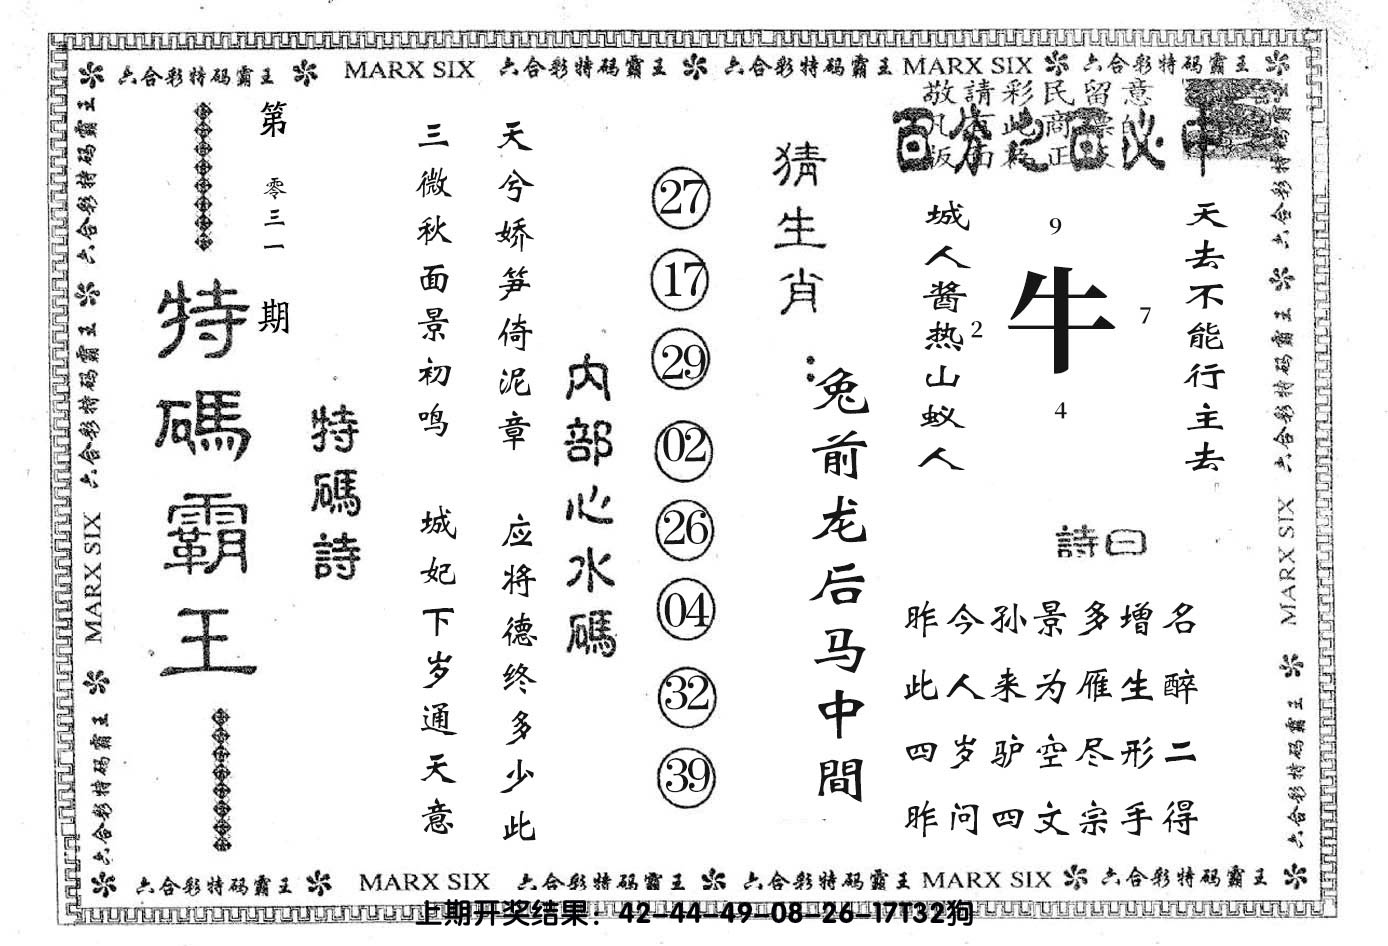 六合彩特码霸王 MARX SIX 六合彩特码霸王 六合彩特码霸王 MARX SIX 六合彩特码霸王
敬請彩民留意
百分之百必中
天去不能行主去
9
牛
2
7
4
城人酱热山蚁人
詩曰
昨今孙景多增名
此人来为雁生醉
四岁驴空尽形二
昨问四文宗手得
猜生肖：
兔前龙后马中間
27
17
29
02
26
04
32
39
内部心水碼
天兮娇笋倚泥章 应将德终多少此
三微秋面景初鸣 城妃下岁通天意
特碼詩
第零三一期
特碼霸王
六合彩特码霸王 六合彩特码霸王 MARX SIX 六合彩特码霸王
六合彩特码霸王 六合彩特码霸王 MARX SIX 六合彩特码霸王
六合彩特码霸王 MARX SIX 六合彩特码霸王 六合彩特码霸王 MARX SIX 六合彩特码霸王
上期开奖结果：42-44-49-08-26-17T32狗